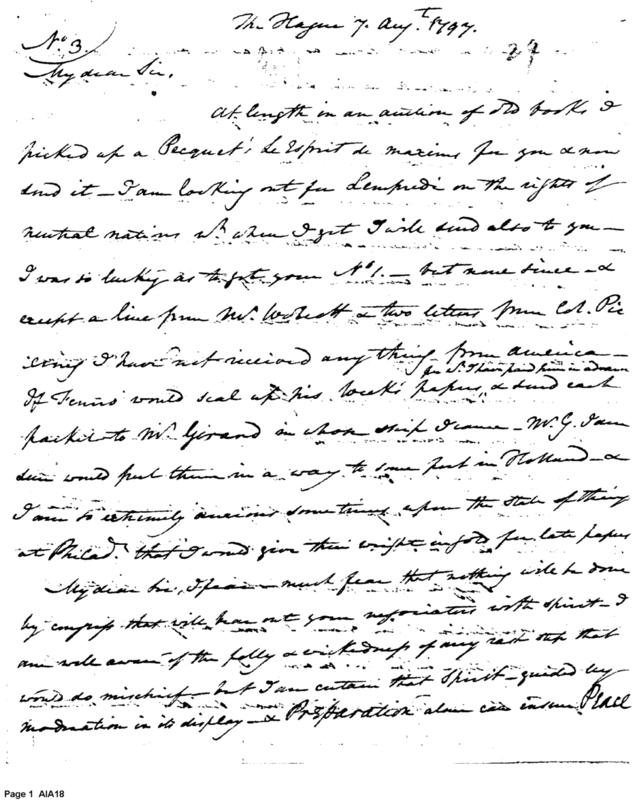 The Hague 7. Augt. 1797.
No. 3.
My dear Sir,
At length in an auction of old books I
picked up a Pecquet's L'Esprit de maxims for you & now
send it – I am looking out for Lempredi on the rights of
neutral nations wh. when I get I will send also to you –
I was so lucky as to get your No 1. – but none since – &
except a line from Mr. Wolcott & two letters from Col. Pic
kering I have not received any thing from America –
for wh. I have paid him in advance
If Fenno would seal up his week's papers, & send each
packet to Mr. Girard in whose ship I came – Mr. G. I am
sure would put them in a way to some port in Holland – &
I am so extremely anxious sometimes upon the state of things
at Philad. that I would give their weight in gold for late papers
My dear Sir, I fear – much fear that nothing will be done
by congress that will bear out your negociators with spirit – I
am well aware of the folly & wickedness of any rash step that
would do mischief – but I am certain that Spirit – guided by
moderation in its display – & Preparation alone can insure Peace
Page 1 AIA18